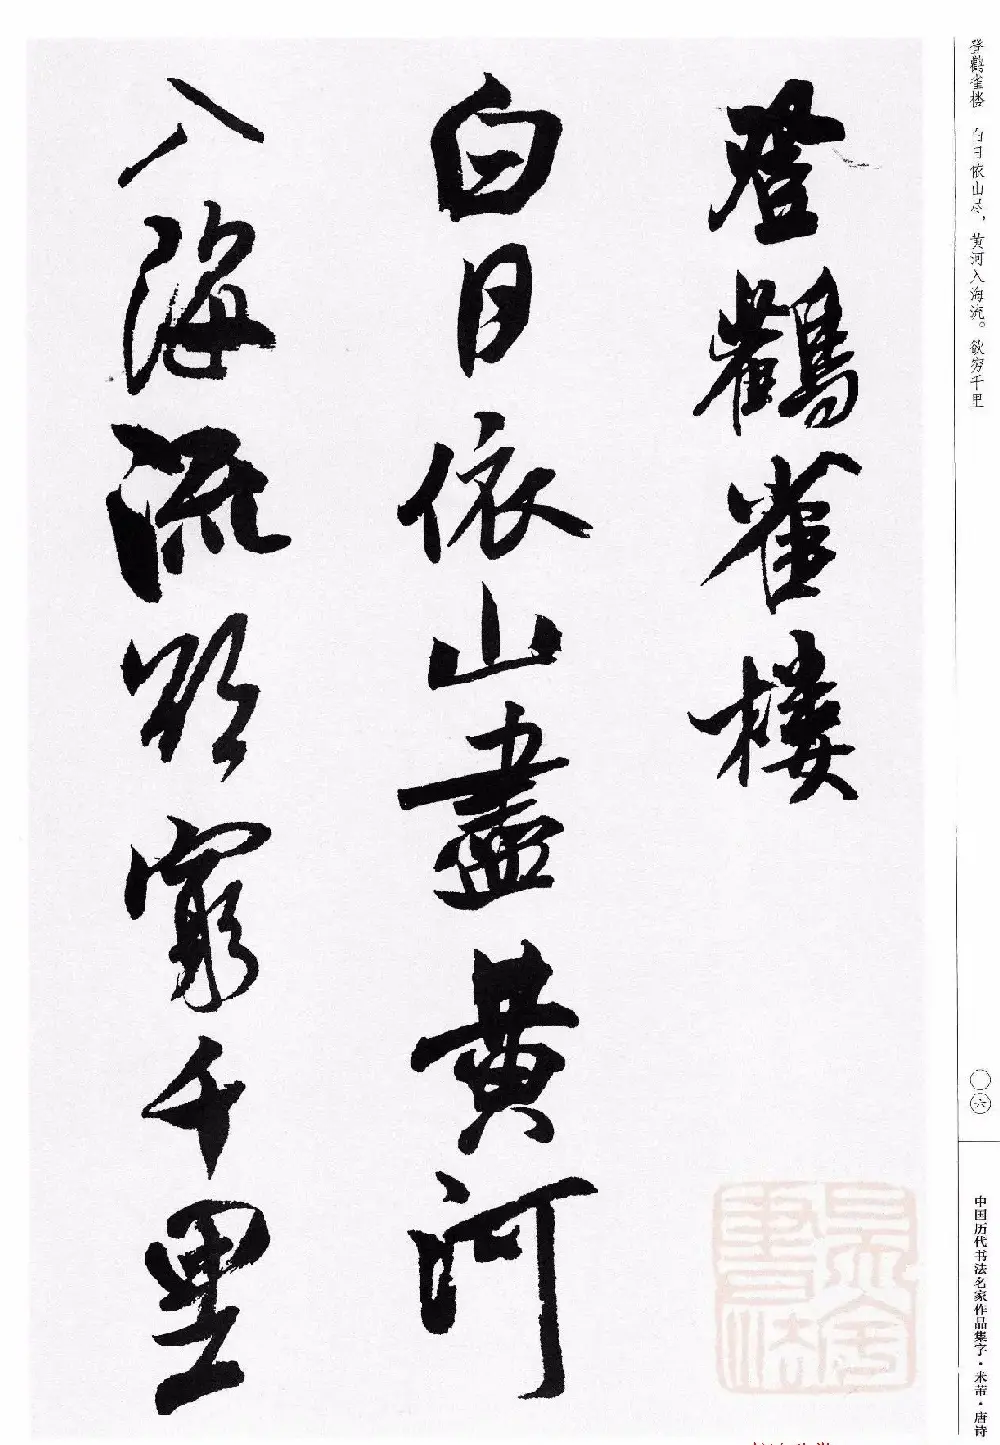 登鸛雀樓
白日依山盡黄河
入海流欲窮千里
登鹳雀楼 白日依山尽，黄河入海流。欲穷千里
〇六
中国历代书法名家作品集字·米芾·唐诗